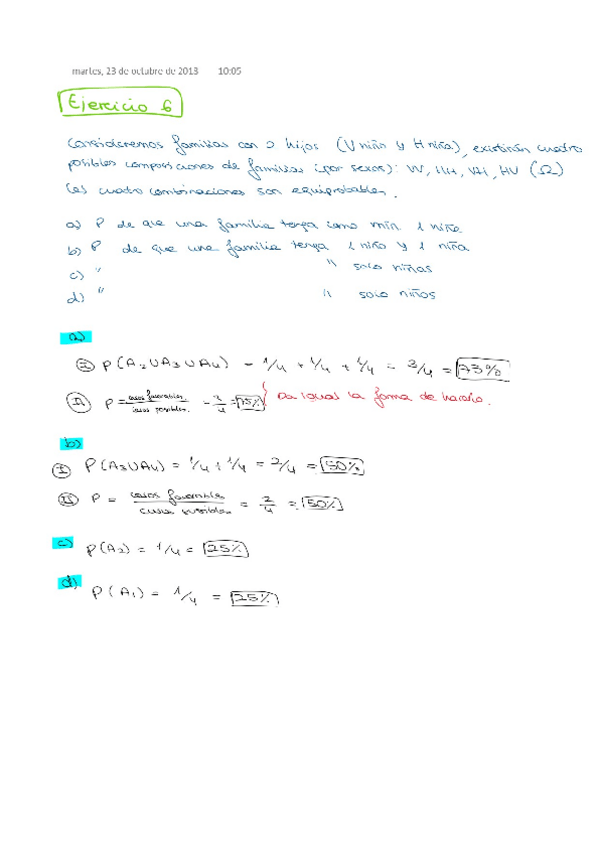 martes, 23 de octubre de 2018 10:05
Ejercicio 6
Consideremos familias con 2 hijos (V niño y H niña), existirán cuatro
posibles composiciones de familias (por sexos): VV, HH, VH, HV (Ω)
Las cuatro combinaciones son equiprobables.
a) P de que una familia tenga como mín. 1 niña
b) P de que una familia tenga 1 niño y 1 niña
c) " " solo niñas
d) " " solo niños
a)
I P(A2 U A3 U A4) = 1/4 + 1/4 + 1/4 = 3/4 = 75%
II P = casos favorables / casos posibles = 3/4 = 75% } Da igual la forma de hacerlo.
b)
I P(A3UA4) = 1/4 + 1/4 = 2/4 = 50%
II P = casos favorables / casos posibles = 2/4 = 50%
c) P(A2) = 1/4 = 25%
d) P(A1) = 1/4 = 25%